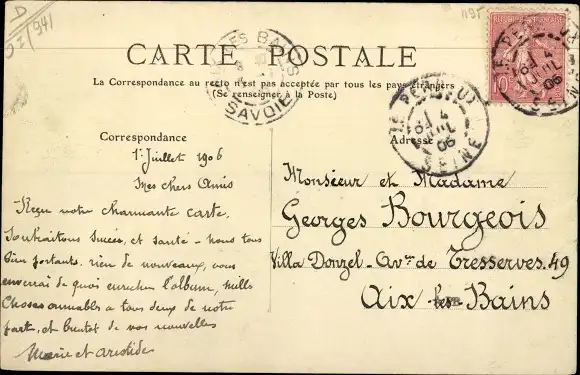 D
02/941
1195
CARTE POSTALE
La Correspondance au recto n'est pas acceptée par tous les pays étrangers
(Se renseigner à la Poste)
LES BAINS
SAVOIE
REPUBLIQUE FRANÇAISE
10
LE PERREUX
4
JUIL
06
SEINE
Correspondance
Adresse
1er Juillet 1906
Mes chers Amis
Reçu votre charmante carte,
Souhaitons succès, et santé - nous tous
bien portants. rien de nouveaux, vous
enverrai de quoi enrichir l'album, mille
Choses aimables a tous deux de notre
part, et bientot de vos nouvelles
Marie et aristide
Monsieur et Madame
Georges Bourgeois
Villa Donzel - Av.ue de Tresserves. 49
Aix les Bains